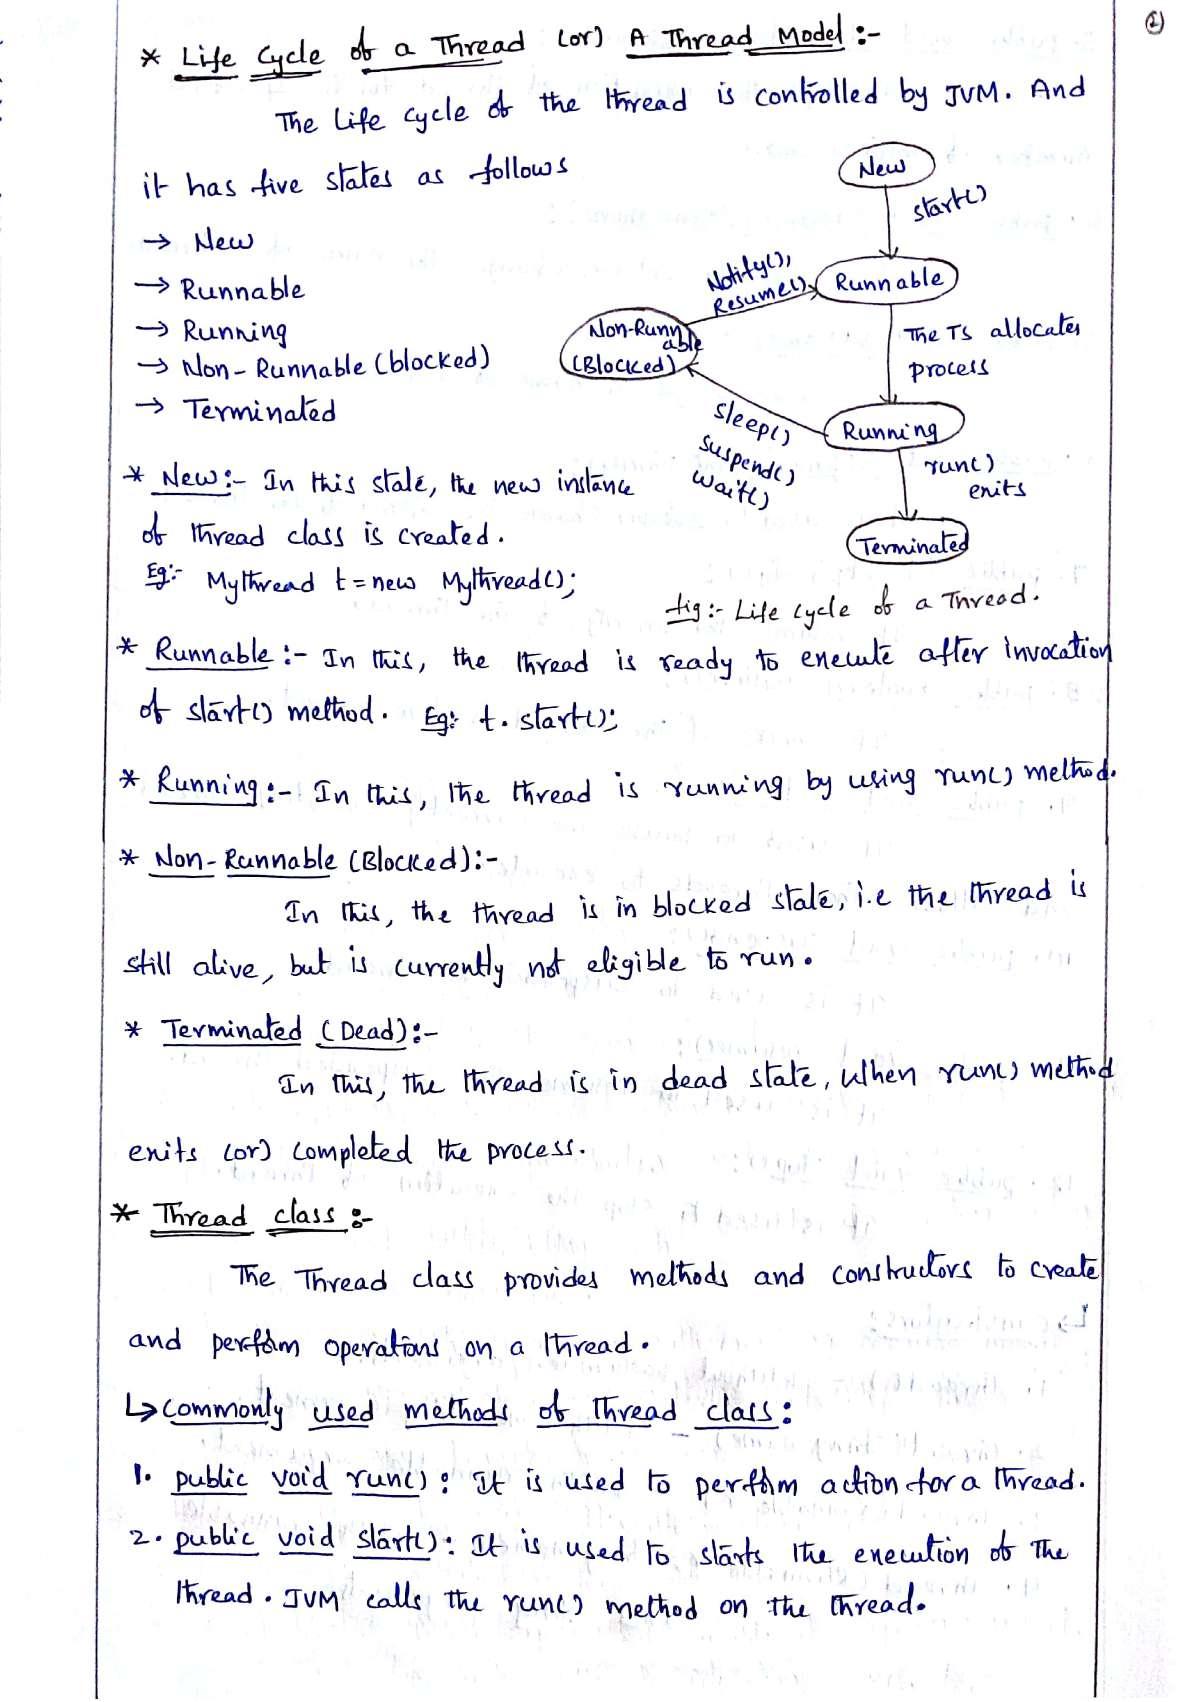 2
* Life Cycle of a Thread (or) A Thread Model :-
The Life cycle of the thread is controlled by JVM. And
it has five states as follows
→ New
→ Runnable
→ Running
→ Non-Runnable (blocked)
→ Terminated
New
start()
Runnable
Notify(),
Resume()
Non-Runn
able
(Blocked)
The TS allocates
process
Running
sleep()
suspend()
wait()
run()
exits
Terminated
fig :- Life cycle of a Thread.
* New :- In this state, the new instance
of thread class is created.
Eg:- Mythread t = new Mythread();
* Runnable :- In this, the thread is ready to execute after invocation
of start() method. Eg:- t.start();
* Running :- In this, the thread is running by using run() method.
* Non-Runnable (Blocked):-
In this, the thread is in blocked state, i.e the thread is
still alive, but is currently not eligible to run.
* Terminated (Dead):-
In this, the thread is in dead state, when run() method
exits (or) completed the process.
* Thread class :-
The Thread class provides methods and constructors to create
and perform operations on a thread.
↳ commonly used methods of Thread class :
1. public void run() : It is used to perform action for a thread.
2. public void start() : It is used to starts the execution of the
thread. JVM calls the run() method on the thread.